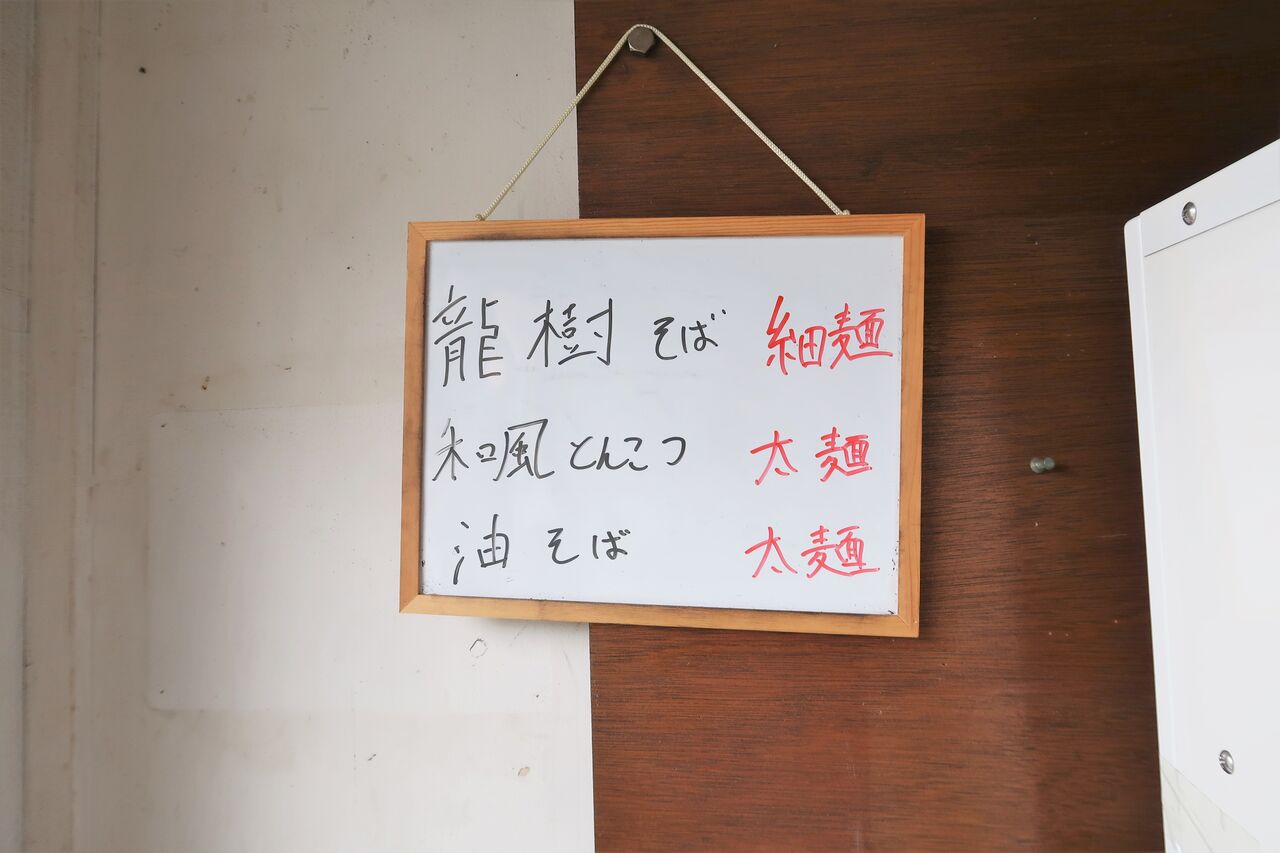 龍樹そば 細麺
和風とんこつ 太麺
油そば 太麺